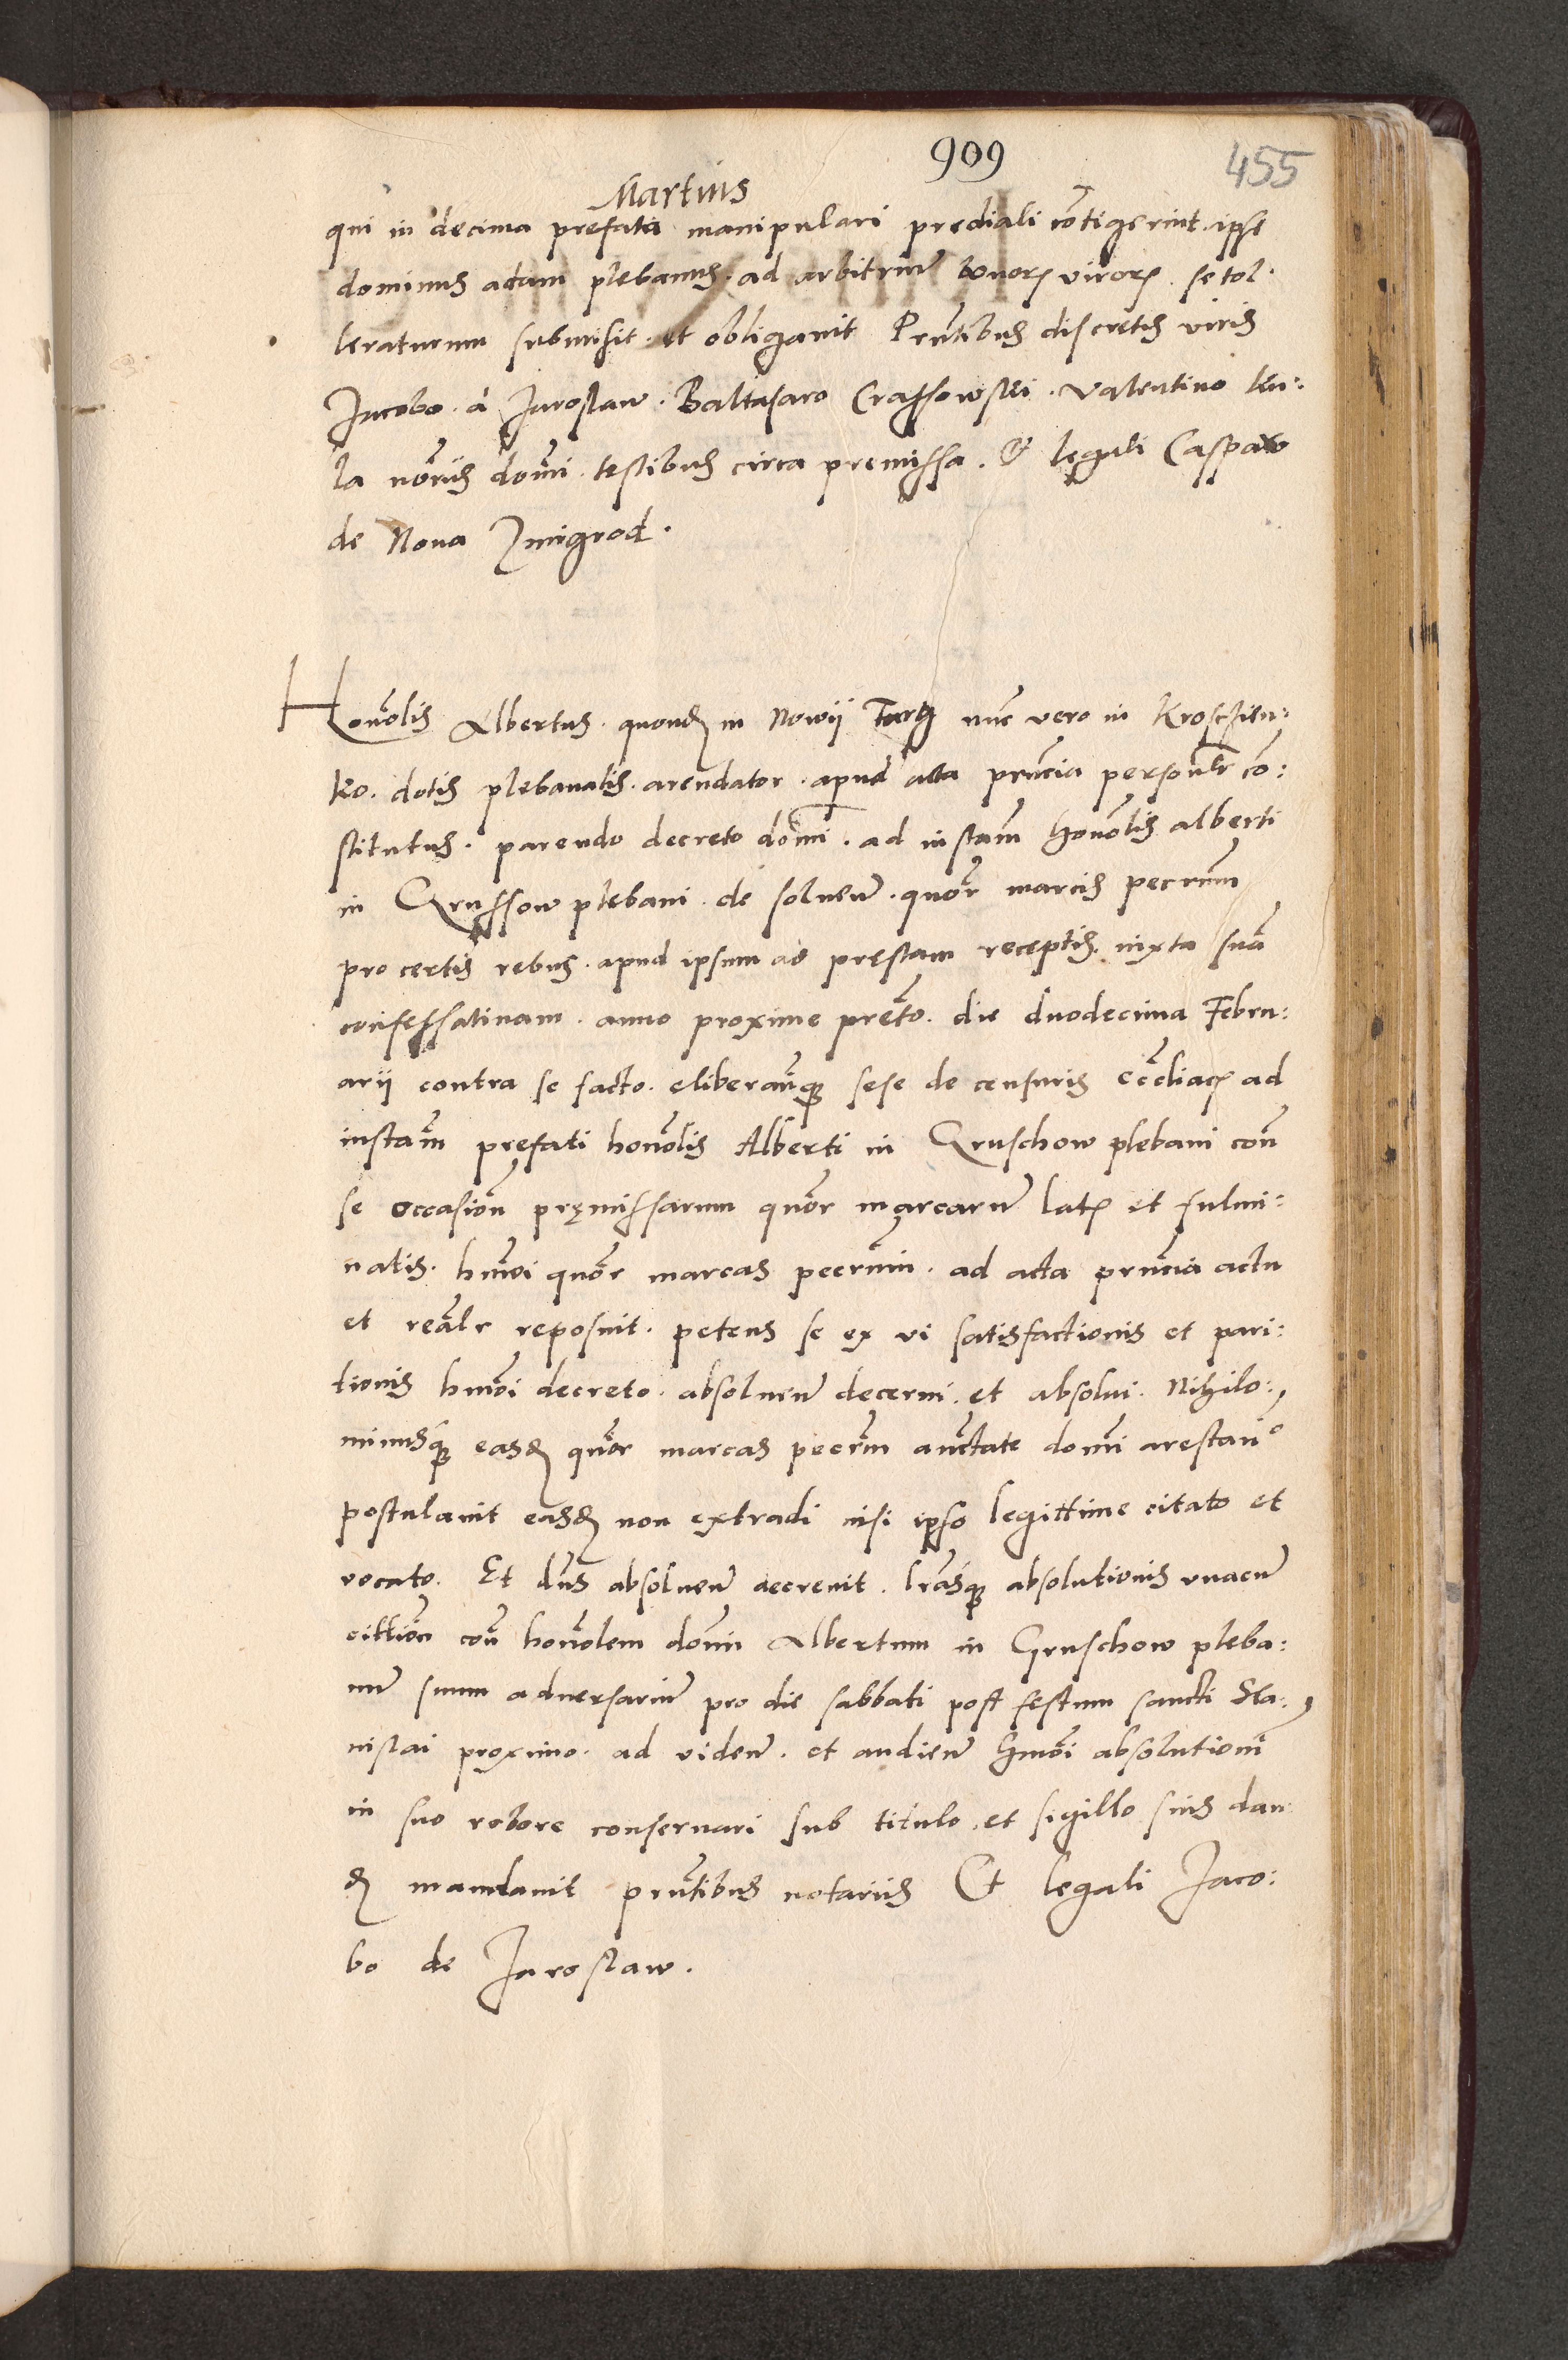 909
455
Martius
qui in decima prefata manipulari prediali cōtigerint. ipse
dominus adam plebanus. ad arbitriū bonorꝫ virorꝫ. se tol:
leraturum submisit. et obligauit Pñtibus discretis viris
Jacobo. à Jaroslaw. Baltasaro Crassowski. valentino Ku:
la nōriis domī. testibus circa premissa. & legali Casparo
de Noua Zmigrod.
Honōlis Albertus. quondꝫ in Nowÿ Targ nūc vero in Krosczien:
ko. dotis plebanalis. arendator. apud acta pñcia personlr̄ co:
stitutus. parendo decreto domī. ad instaīn honōlis alberti
in Grussow plebani. de soluen̄. quōr marcis pecuniīn
pro certis rebus. apud ipsum ad prestam receptis. iuxta suā
confessatinam. anno proxime pretō. die duodecima Febru:
arii contra se facto. eliberan̄qꝫ sese de censuris ecclīacꝫ ad
instaīn prefati honōlis Alberti in Gruschow plebani con̄
se occasioīn pręmissarum quōr marcarū latꝫ et fulmi:
natis. hmōi quōr marcas pecuniīn. ad acta pñcia actu
et realr̄ reposuit. petens se ex vi satisfactionis et pari:
tionis hmōi decreto. absoluen̄ decerni. et absolui. Nihilo:
minusqꝫ easdꝫ quōr marcas pecuniīn auctate domī arestari
postulauit easdꝫ non extradi nisi ipso legittime citato et
vocato. Et dn̄s absoluen̄ decreuit. lr̄asqꝫ absolutionis vnacū
cittioīn con̄ honōlem domī Albertum in Gruschow pleba:
nū suum aduersariū pro die sabbati post festum sancti Sta:
nislai proximo. ad viden̄. et audien̄ hmōi absolutionī
in suo robore conseruari sub titulo. et sigillo suis dan
dꝫ mandauit pñtibus notariis Et legali Jaco:
bo de Jaroslaw.